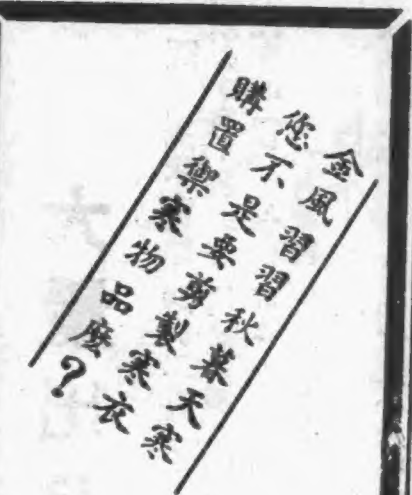 金風習習秋暮天寒
您不是要剪製寒衣
購置禦寒物品麽？